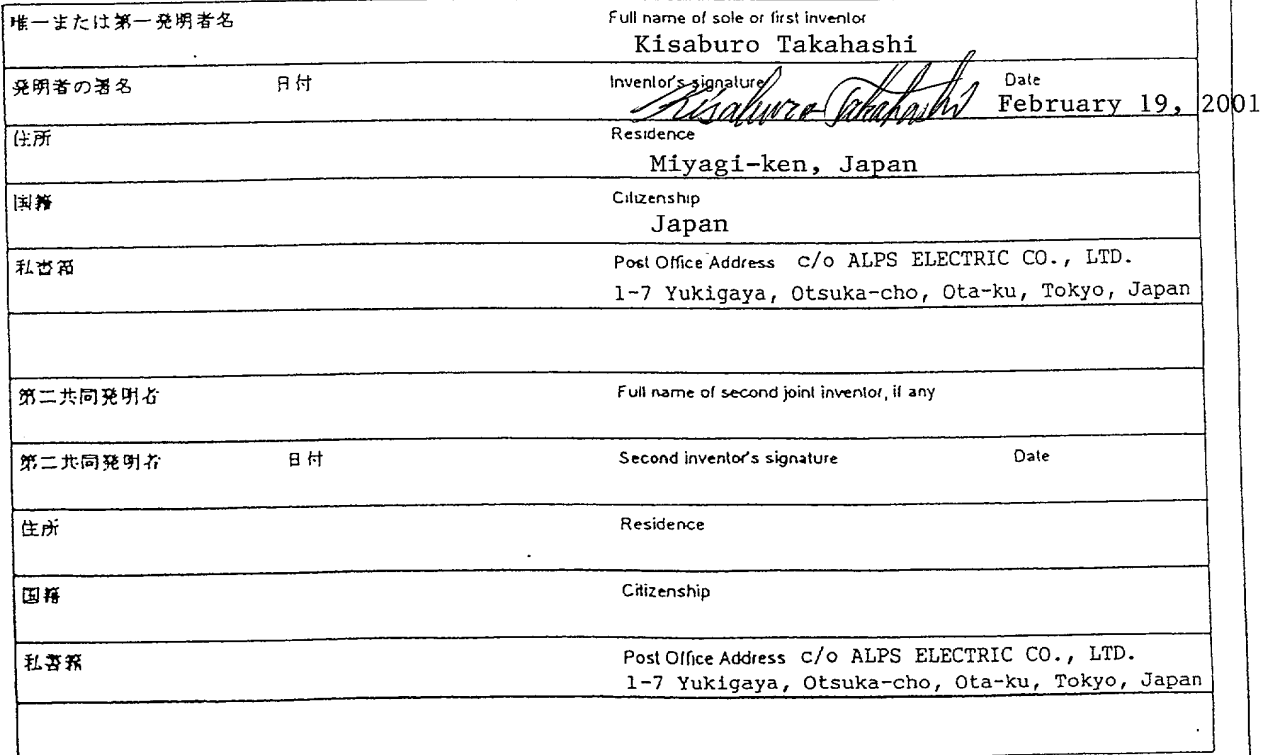 唯一または第一発明者名 Full name of sole or first inventor
Kisaburo Takahashi
発明者の署名 日付 Inventor's signature Date
Kisaburo Takahashi February 19, 2001
住所 Residence
Miyagi-ken, Japan
国籍 Citizenship
Japan
私書箱 Post Office Address c/o ALPS ELECTRIC CO., LTD.
1-7 Yukigaya, Otsuka-cho, Ota-ku, Tokyo, Japan
第二共同発明者 Full name of second joint inventor, if any
第二共同発明者 日付 Second inventor's signature Date
住所 Residence
国籍 Citizenship
私書箱 Post Office Address c/o ALPS ELECTRIC CO., LTD.
1-7 Yukigaya, Otsuka-cho, Ota-ku, Tokyo, Japan